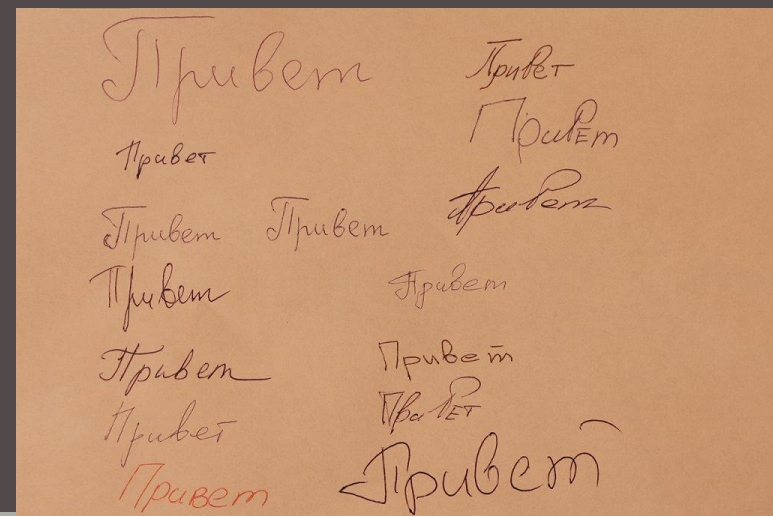 Привет
Привет
Привет
Привет
Привет Привет
Привет
Привет
Привет
Привет
Привет
Привет
Привет
Привет
Привет
Привет